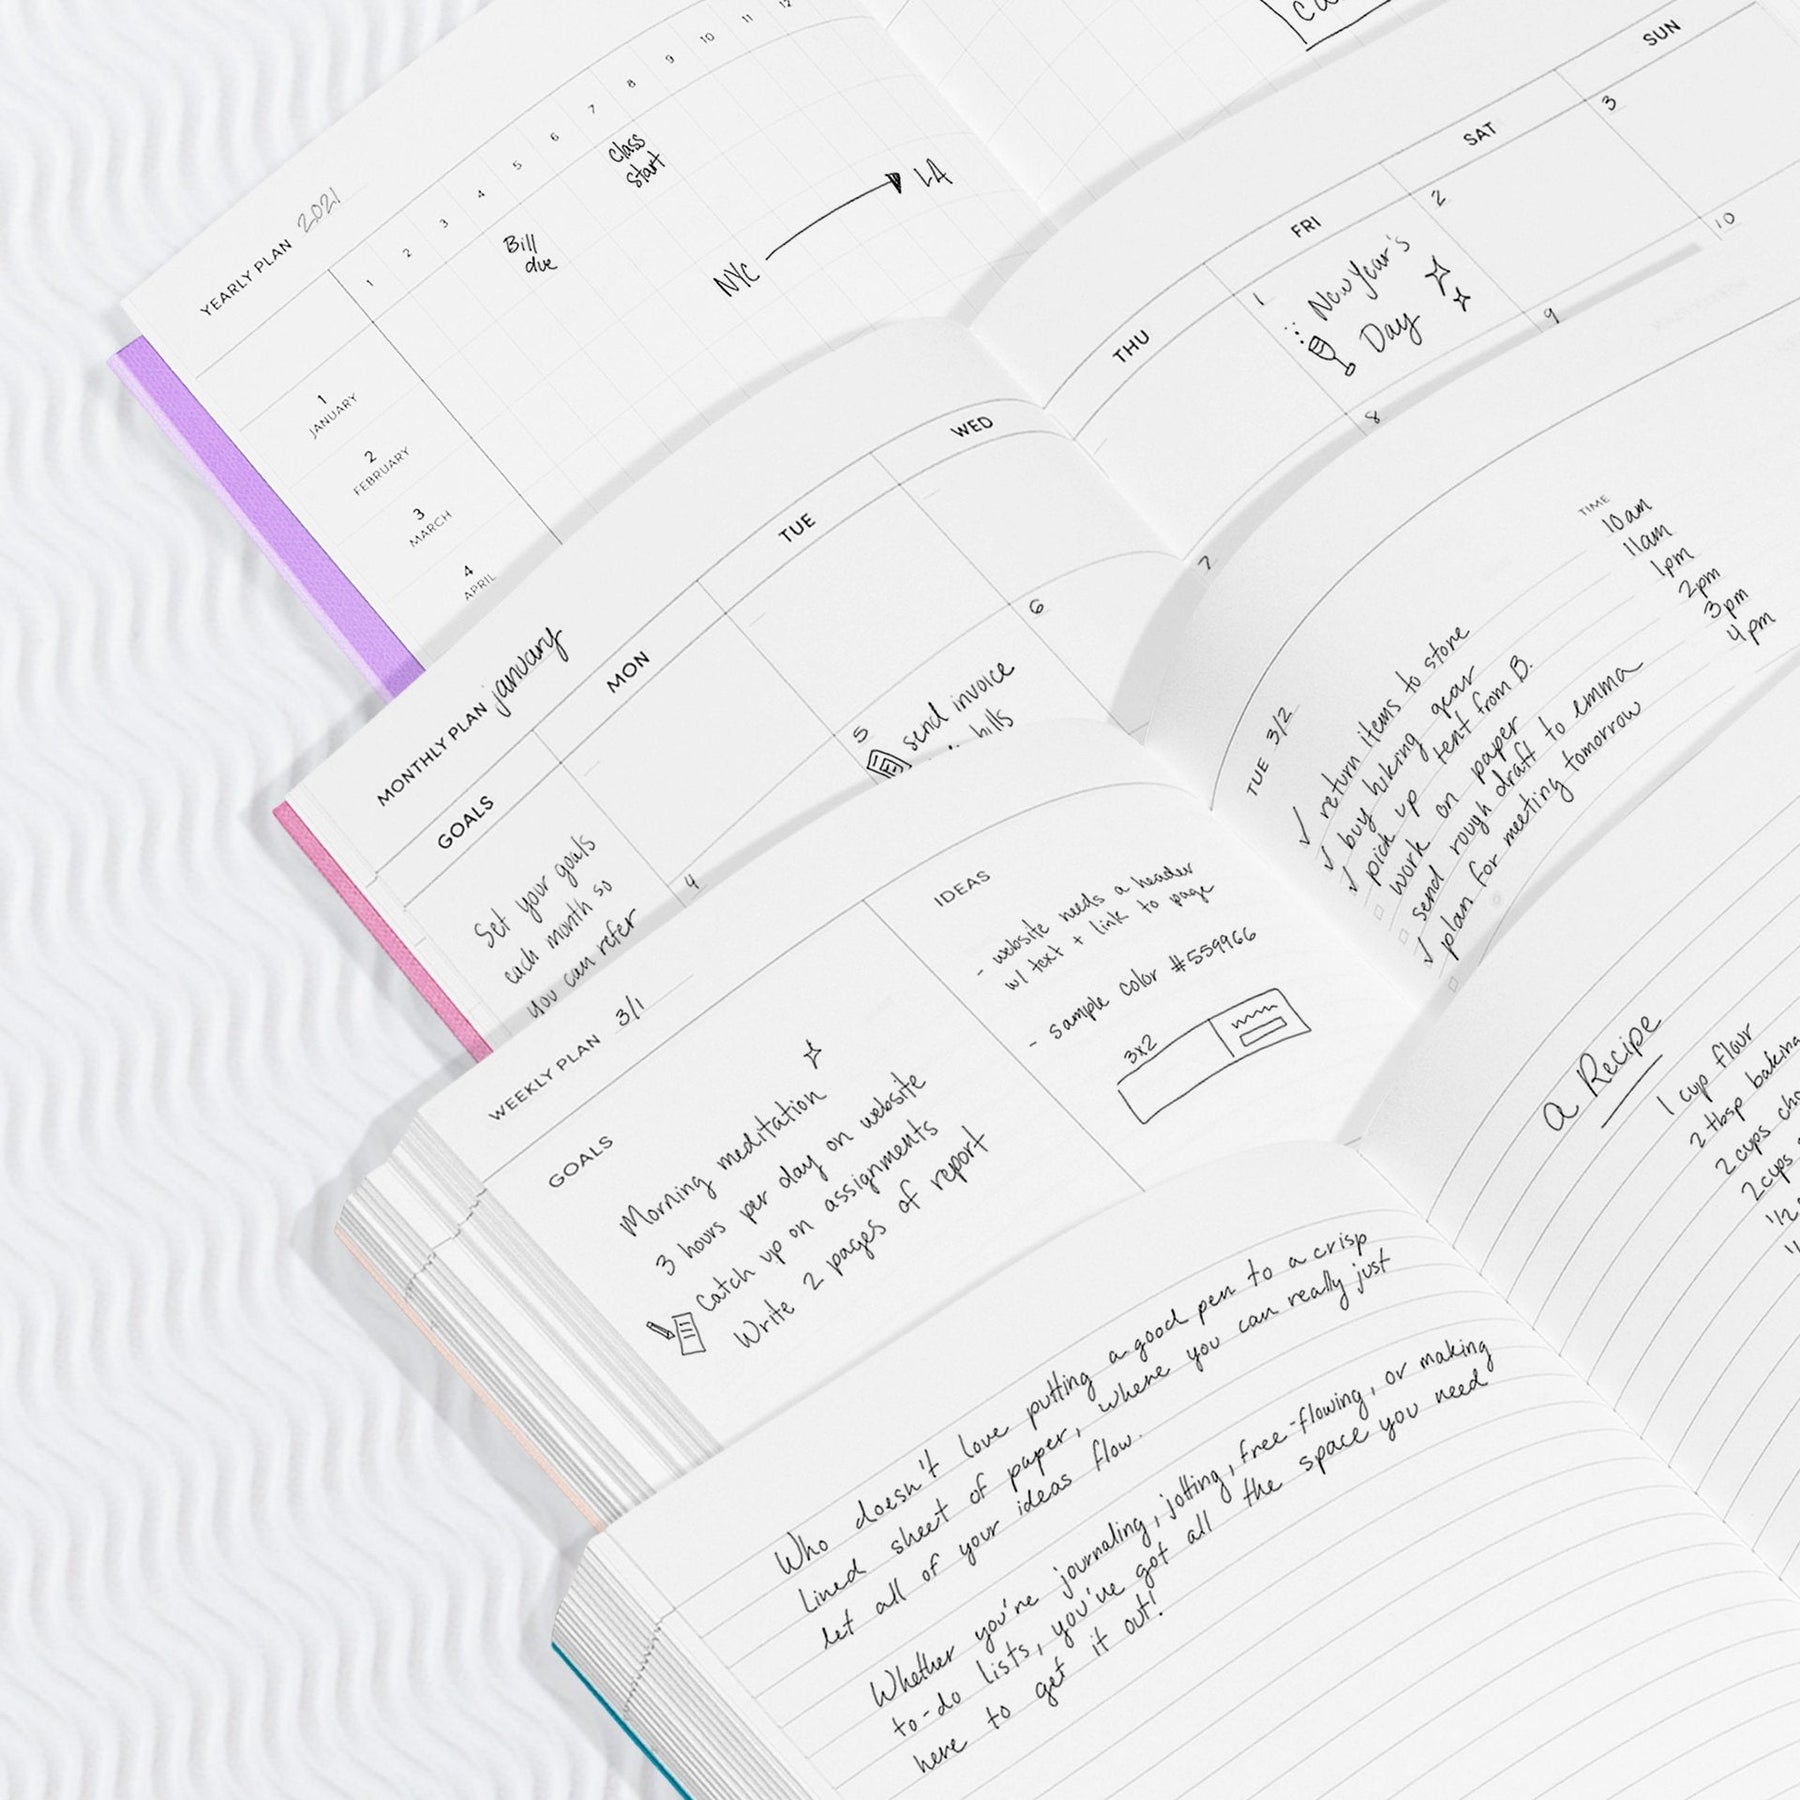 YEARLY PLAN 2021
1 2 3 4 5 6 7 8 9 10 11 12
Class
Start
Bill
due
NYC LA
1
JANUARY
2
FEBRUARY
3
MARCH
4
APRIL
MONTHLY PLAN january
GOALS MON TUE WED
Set your goals
each month so
you can refer
4
5
6
send invoice
bills
THU FRI SAT SUN
1 2 3
New Year's
Day
7 8 9 10
WEEKLY PLAN 3/1
GOALS
Morning meditation
3 hours per day on website
Catch up on assignments
Write 2 pages of report
IDEAS
- website needs a header
w/ text + link to page
- sample color #559966
3x2
TUE 3/2
TIME
✓ return items to store 10am
✓ buy hiking gear 11am
✓ pick up tent from B. 1pm
work on paper 2pm
send rough draft to emma 3pm
✓ plan for meeting tomorrow 4pm
Who doesn't love putting a good pen to a crisp
lined sheet of paper, where you can really just
let all of your ideas flow.
Whether you're journaling, jotting, free-flowing, or making
to-do lists, you've got all the space you need
here to get it out!
a Recipe
1 cup flour
2 tbsp baking
2 cups
2 cups
1/2